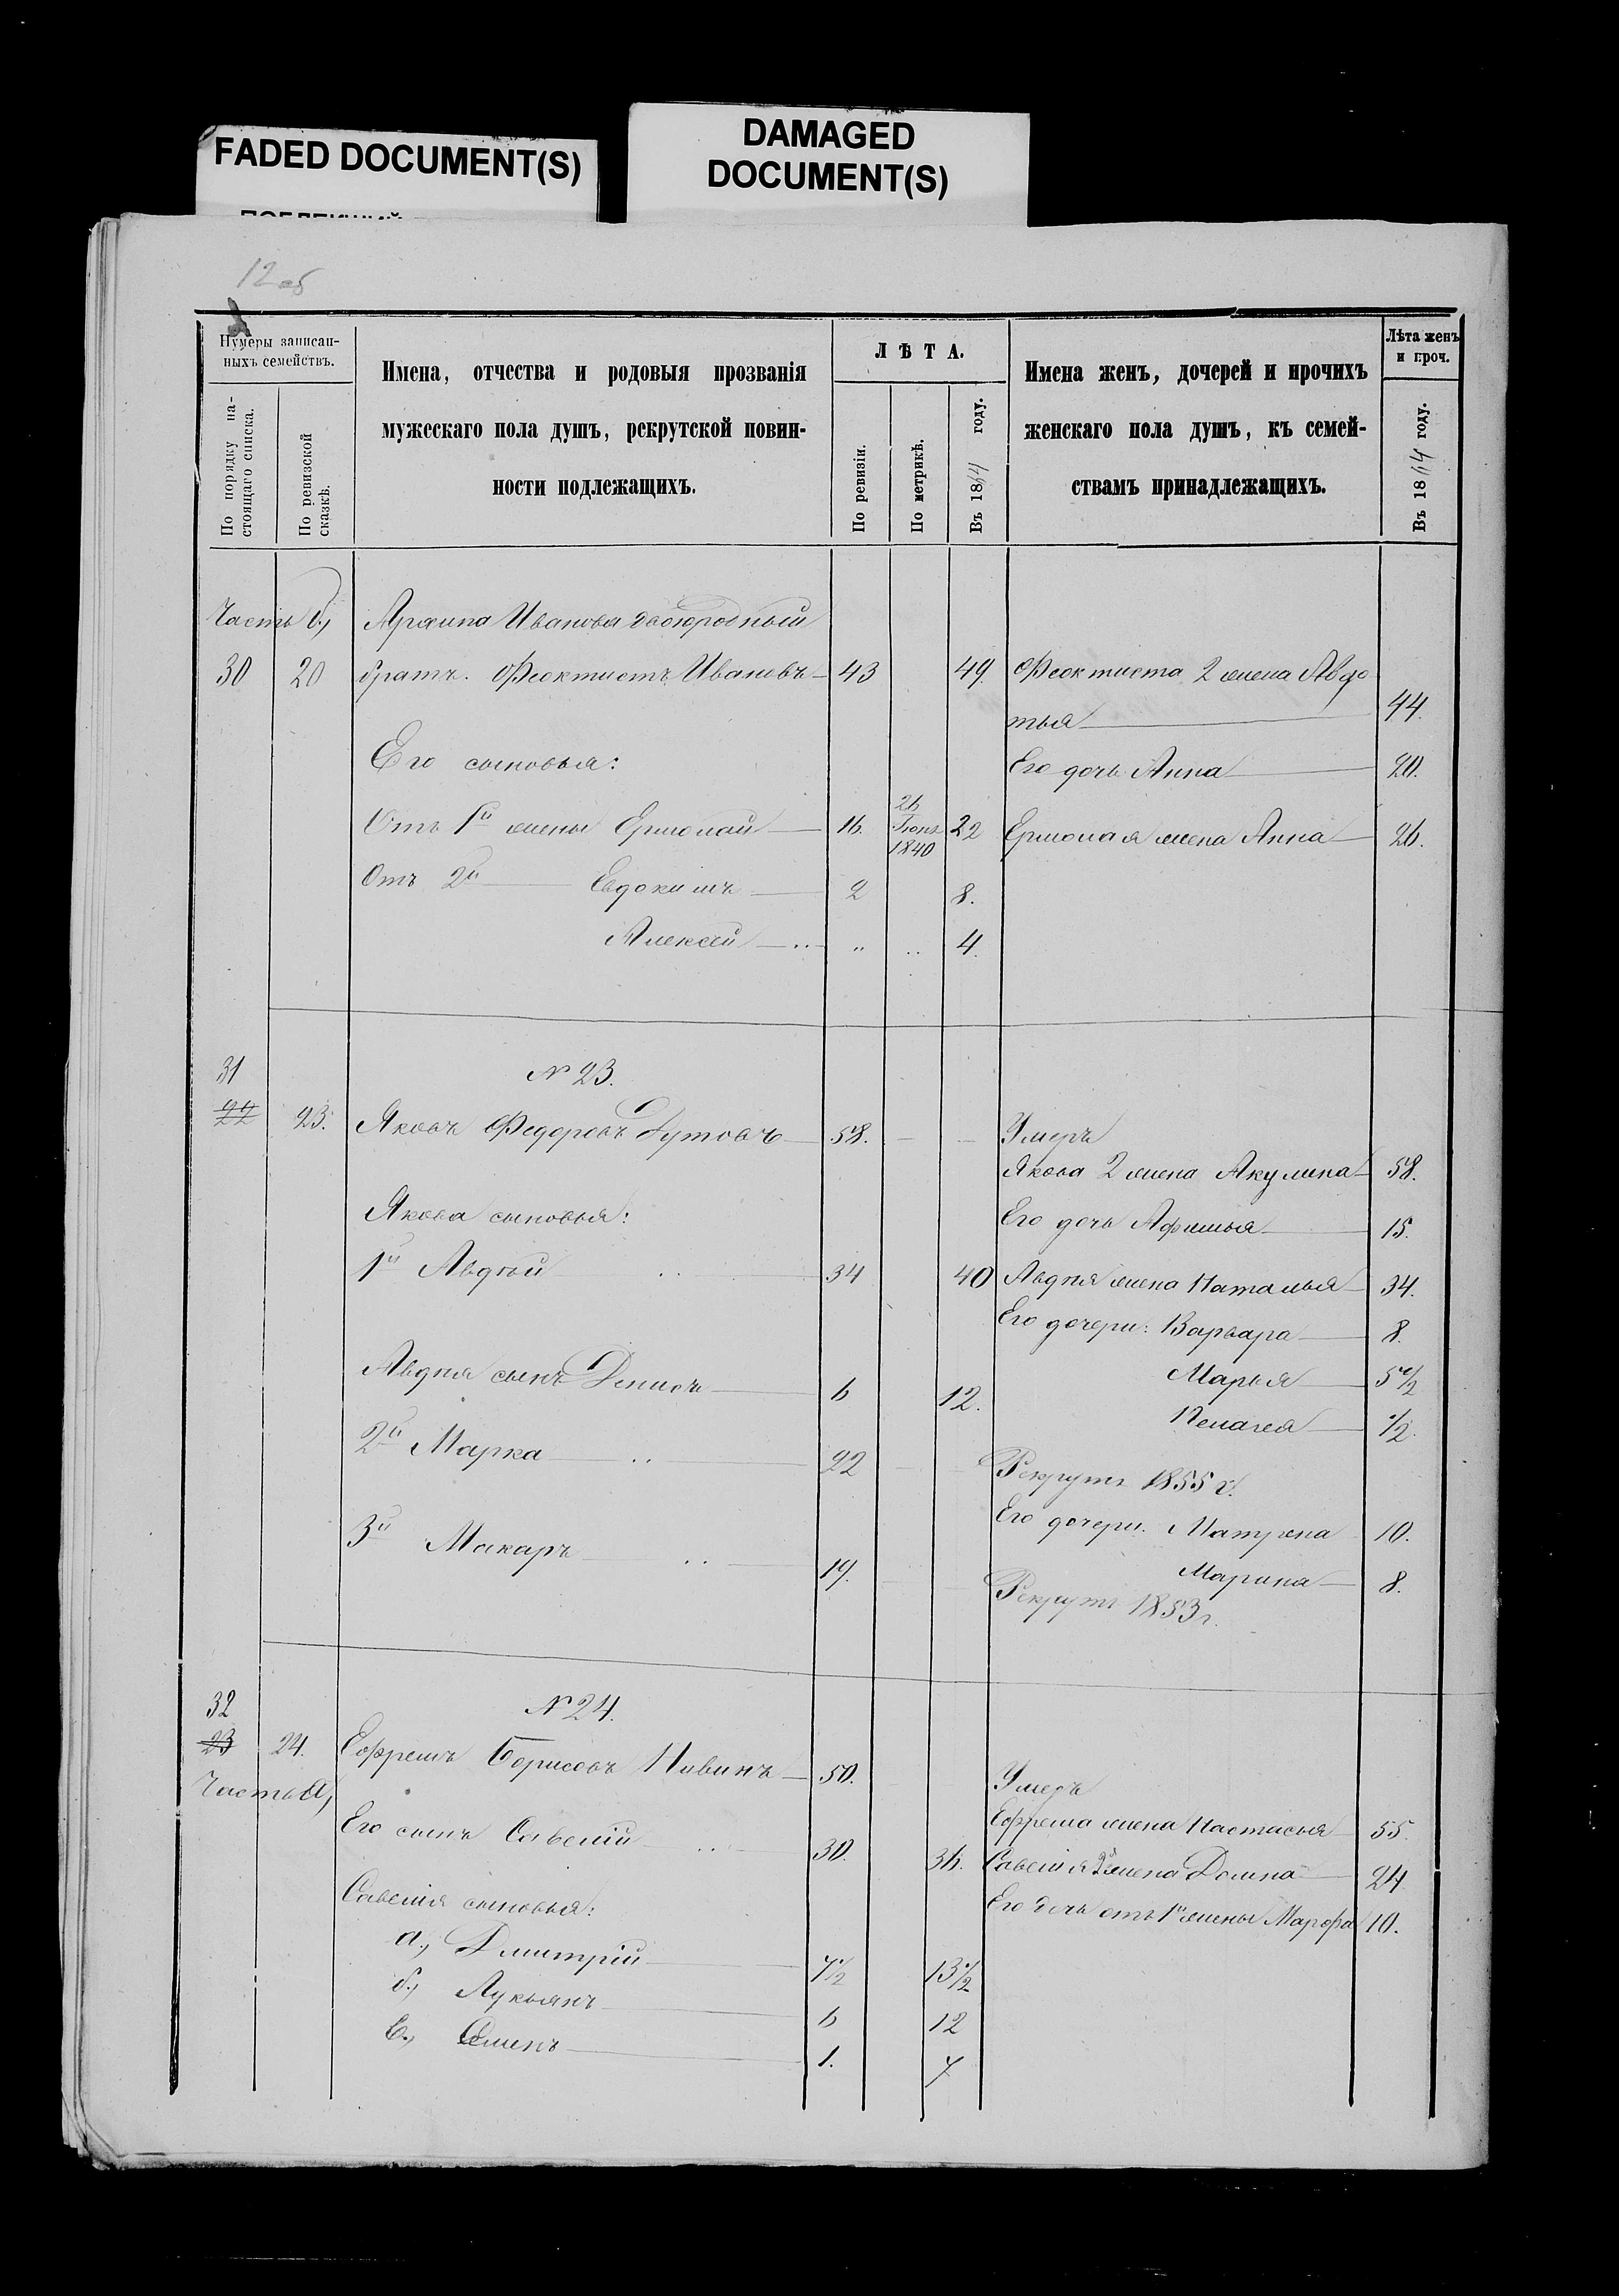 FADED DOCUMENT(S)
DAMAGED
DOCUMENT(S)
12 об
Нумеры записан-
ныхъ семействъ.
По порядку на-
стоящаго списка.
По ревизской
сказкѣ.
Имена, отчества и родовыя прозванія
мужескаго пола душъ, рекрутской повин-
ности подлежащихъ.
ЛѢТА.
По ревизіи.
По метрикѣ.
Въ 1864 году.
Имена женъ, дочерей и прочихъ
женскаго пола душъ, къ семей-
ствамъ принадлежащихъ.
Лѣта женъ
и проч.
Въ 1864 году.
Часть б, Архипа Иванова двоюродный
30 20 братъ. Феоктистъ Ивановъ 43 49. Феоктиста 2 жена Авдо
тья 44.
Его сыновья: Его дочь Анна 20.
Отъ 1й жены Ермолай 16. 26 Іюля 1840 22 Ермолая жена Анна 26.
Отъ 2й Евдокимъ 2 8.
Алексѣй .. .. .. 4.
31 N 23.
22 23. Яковъ Федоровъ Гутовъ 58. Умеръ
Якова 2 жена Акулина 58.
Якова сыновья: Его дочь Афимья 15.
1й Авдѣй .. 34 40 Авдѣя жена Наталья 34.
Его дочери: Варвара 8.
Авдѣя сынъ Денисъ 6 12. Марья 5 1/2
Пелагея 1/2.
2й Марка .. 22 Рекрутъ 1855 г.
Его дочери. Матрена 10.
3й Макаръ .. 19. Марина 8.
Рекрутъ 1853 г.
32 N 24.
23 24. Ефремъ Борисовъ Пивинъ 50. Умеръ
Часть а,
Ефрема жена Настасья 55.
Его сынъ Савелій .. 30. 36. Савелія 2й жена Домна 24.
Савелія сыновья: Его дочь отъ 1й жены Марфа 10.
а., Дмитрій 7 1/2 13 1/2
б., Лукьянъ 6 12
в., Семенъ 1. 7